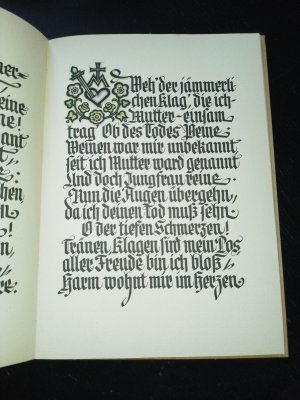 er-
eine
ine!
ant
t
e:
chen
n
re:
Weh' der jämmerli
chen Klag', die ich
Mutter einsam
trag' Ob des Todes Peine
Weinen war mir unbekannt
seit ich Mutter ward genannt
Und doch Jungfrau reine
Nun die Augen übergehn,
da ich deinen Tod muß sehn
O der tiefen Schmerzen!
Tränen, Klagen sind mein Los
aller Freude bin ich bloß
Harm wohnt mir im Herzen